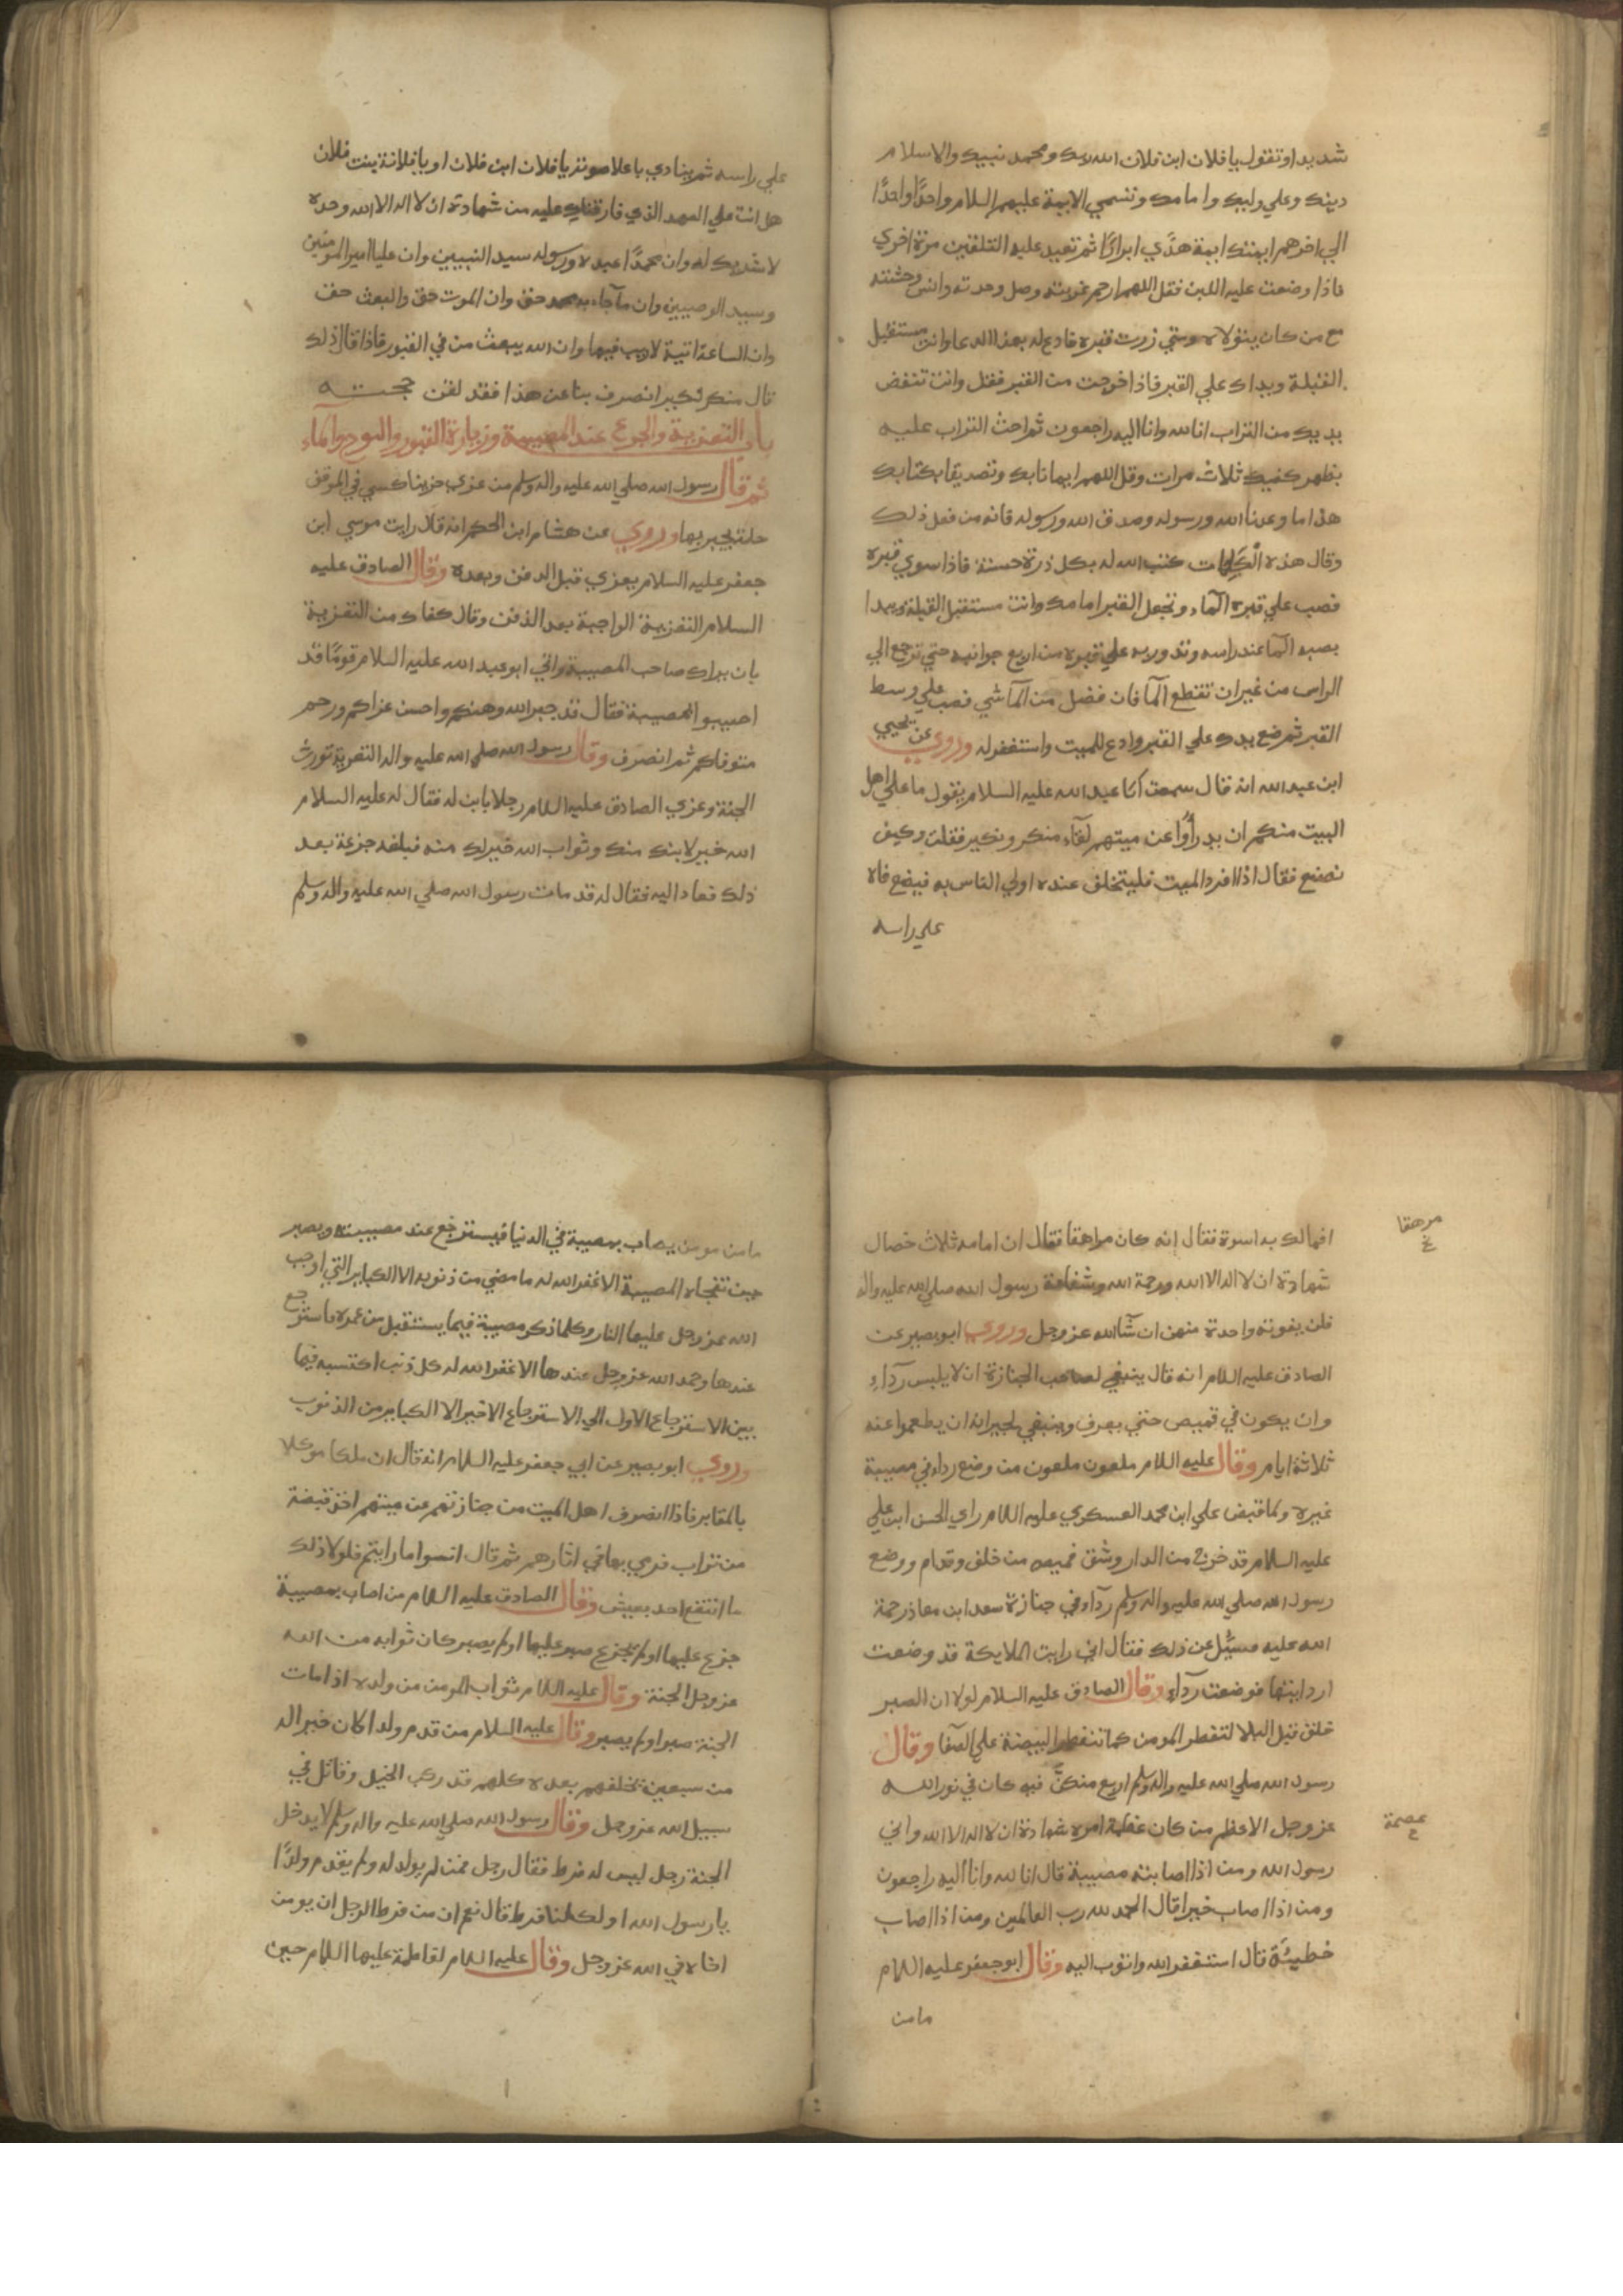 شديدا وتقول يا فلان ابن فلان الله ربك ومحمد نبيك والاسلام
دينك وعلي وليك وامامك وتسمي الايمة عليهم السلام واحدًا واحدًا
الي اخرهم ايمتك ايمة هدًي ابرارًا ثم تعيد عليه التلقين مرة اخري
فاذا وضعت عليه اللبن فقل اللهم ارحم غربته وصل وحدته وانس وحشته
مع من كان يتولاه ومتي زرت قبره فادع له بهذا الدعا وانت مستقبل
القبلة ويداك علي القبر فاذا خرجت من القبر فقل وانت تنفض
يديك من التراب انا لله وانا اليه راجعون ثم احث التراب عليه
بظهر كفيك ثلاث مرات وقل اللهم ايمانا بك وتصديقا بكتابك
هذا ما وعدنا الله ورسوله وصدق الله ورسوله فانه من فعل ذلك
وقال هذه الكلمات كتب الله له بكل ذرة حسنة فاذا سوي قبره
فصب علي قبره المآء وتجعل القبر امامك وانت مستقبل القبلة ويبدا
بصب المآ عند راسه وتدور به علي قبره من اربع جوانبه حتي ترجع الي
الراس من غير ان تقطع المآ فان فضل من المآ شي فصب علي وسط
القبر ثم ضع يدك علي القبر وادع للميت واستغفر له وروي عن يحيي
ابن عبد الله انه قال سمعت ابا عبد الله عليه السلام يقول ما علي اهل
البيت منكم ان يدرأوا عن ميتهم لقآء منكر ونكير فقلت وكيف
نصنع فقال اذا افرد الميت فليتخلف عنده اولي الناس به فيضع فاه
علي راسه
علي راسه ثم ينادي باعلا صوته يا فلان ابن فلان او يا فلانة بنت فلان
هل انت علي العهد الذي فارقناك عليه من شهادة ان لا اله الا الله وحده
لا شريك له وان محمدًا عبده ورسوله سيد النبيين وان عليا امير المومنين
وسيد الوصيين وان ما جآء به محمد حق وان الموت حق والبعث حق
وان الساعة اتية لا ريب فيها وان الله يبعث من في القبور فاذا قال ذلك
قال منكر لنكير انصرف بنا عن هذا فقد لقن حجته
باب التعزية والجزع عند المصيبة وزيارة القبور والنوح والمآء
ثم قال رسول الله صلي الله عليه واله وسلم من عزي حزينا كسي في الموقف
حلة يحبر بها وروي عن هشام ابن الحكم انه قال رايت موسي ابن
جعفر عليه السلام يعزي قبل الدفن وبعده وقال الصادق عليه
السلام التعزية الواجبة بعد الدفن وقال كفاك من التعزية
بان يراك صاحب المصيبة واتي ابو عبد الله عليه السلام قومًا قد
اصيبوا بمصيبة فقال قد جبر الله وهنكم واحسن عزاكم ورحم
متوفاكم ثم انصرف وقال رسول الله صلي الله عليه واله التعزية تورث
الجنة وعزي الصادق عليه السلام رجلا بابن له فقال له عليه السلام
الله خير لابنك منك وثواب الله خير لك منه فبلغه جزعة بعد
ذلك فعاد اليه فقال له قد مات رسول الله صلي الله عليه واله وسلم
افما لك به اسوة فقال انه كان مراهقا فقال ان امامه ثلاث خصال
مرهقا
خ
شهادة ان لا اله الا الله ورحمة الله وشفاعة رسول الله صلي الله عليه واله
فلن يفوته واحدة منهن ان شآ الله عز وجل وروي ابو بصير عن
الصادق عليه السلام انه قال ينبغي لصاحب الجنازة ان لا يلبس ردآء
وان يكون في قميص حتي يعرف وينبغي لجيرانه ان يطعموا عنه
ثلاثة ايام وقال عليه السلام ملعون ملعون من وضع رداه في مصيبة
غيره ولما قبض علي ابن محمد العسكري عليه السلام راي الحسن ابن علي
عليه السلام قد خرج من الدار وشق قميصه من خلف وقدام ووضع
رسول الله صلي الله عليه واله وسلم ردآه في جنازة سعد ابن معاذ رحمة
الله عليه فسئل عن ذلك فقال اني رايت الملايكة قد وضعت
ارديتها فوضعت ردآي وقال الصادق عليه السلام لولا ان الصبر
خلق قبل البلا لتفطر المومن كما تتفطر البيضة علي الصفا وقال
رسول الله صلي الله عليه واله وسلم اربع من كنَّ فيه كان في نور الله
عز وجل الاعظم من كان عظمة امره شهادة ان لا اله الا الله واني
عصمة
خ
رسول الله ومن اذا اصابته مصيبة قال انا لله وانا اليه راجعون
ومن اذا اصاب خيرا قال الحمد لله رب العالمين ومن اذا اصاب
خطيئة قال استغفر الله واتوب اليه وقال ابو جعفر عليه السلام
ما من
ما من مومن يصاب بمصيبة في الدنيا فيسترجع عند مصيبته ويصبر
حين تفجاه المصيبة الا غفر الله له ما مضي من ذنوبه الا الكباير التي اوجب
الله عز وجل عليها النار وكلما ذكر مصيبة فيما يستقبل من عمره فاسترجع
عندها وحمد الله عز وجل عندها الا غفر الله له كل ذنب اكتسبه فيما
بين الاسترجاع الاول الي الاسترجاع الاخير الا الكباير من الذنوب
وروي ابو بصير عن ابي جعفر عليه السلام انه قال ان ملكا موكلا
بالمقابر فاذا انصرف اهل الميت من جنازتهم عن ميتهم اخذ قبضة
من تراب فرمي بها في اثارهم ثم قال انسوا ما رايتم فلولا ذلك
ما انتفع احد بعيش وقال الصادق عليه السلام من اصاب بمصيبة
جزع عليها او لم يجزع صبر عليها او لم يصبر كان ثوابه من الله
عز وجل الجنة وقال عليه السلام ثواب المومن من ولده اذا مات
الجنة صبر او لم يصبر وقال عليه السلام من قدم ولدا كان خير اله
من سبعين يخلفهم بعده كلهم قد ركب الخيل وقاتل في
سبيل الله عز وجل وقال رسول الله صلي الله عليه واله وسلم لا يدخل
الجنة رجل ليس له فرط فقال رجل ممن لم يولد له ولم يقدم ولدًا
يا رسول الله او لكلنا فرط قال نعم ان من فرط الرجل ان يومن
اخاه في الله عز وجل وقال عليه السلام لفاطمة عليها السلام حين